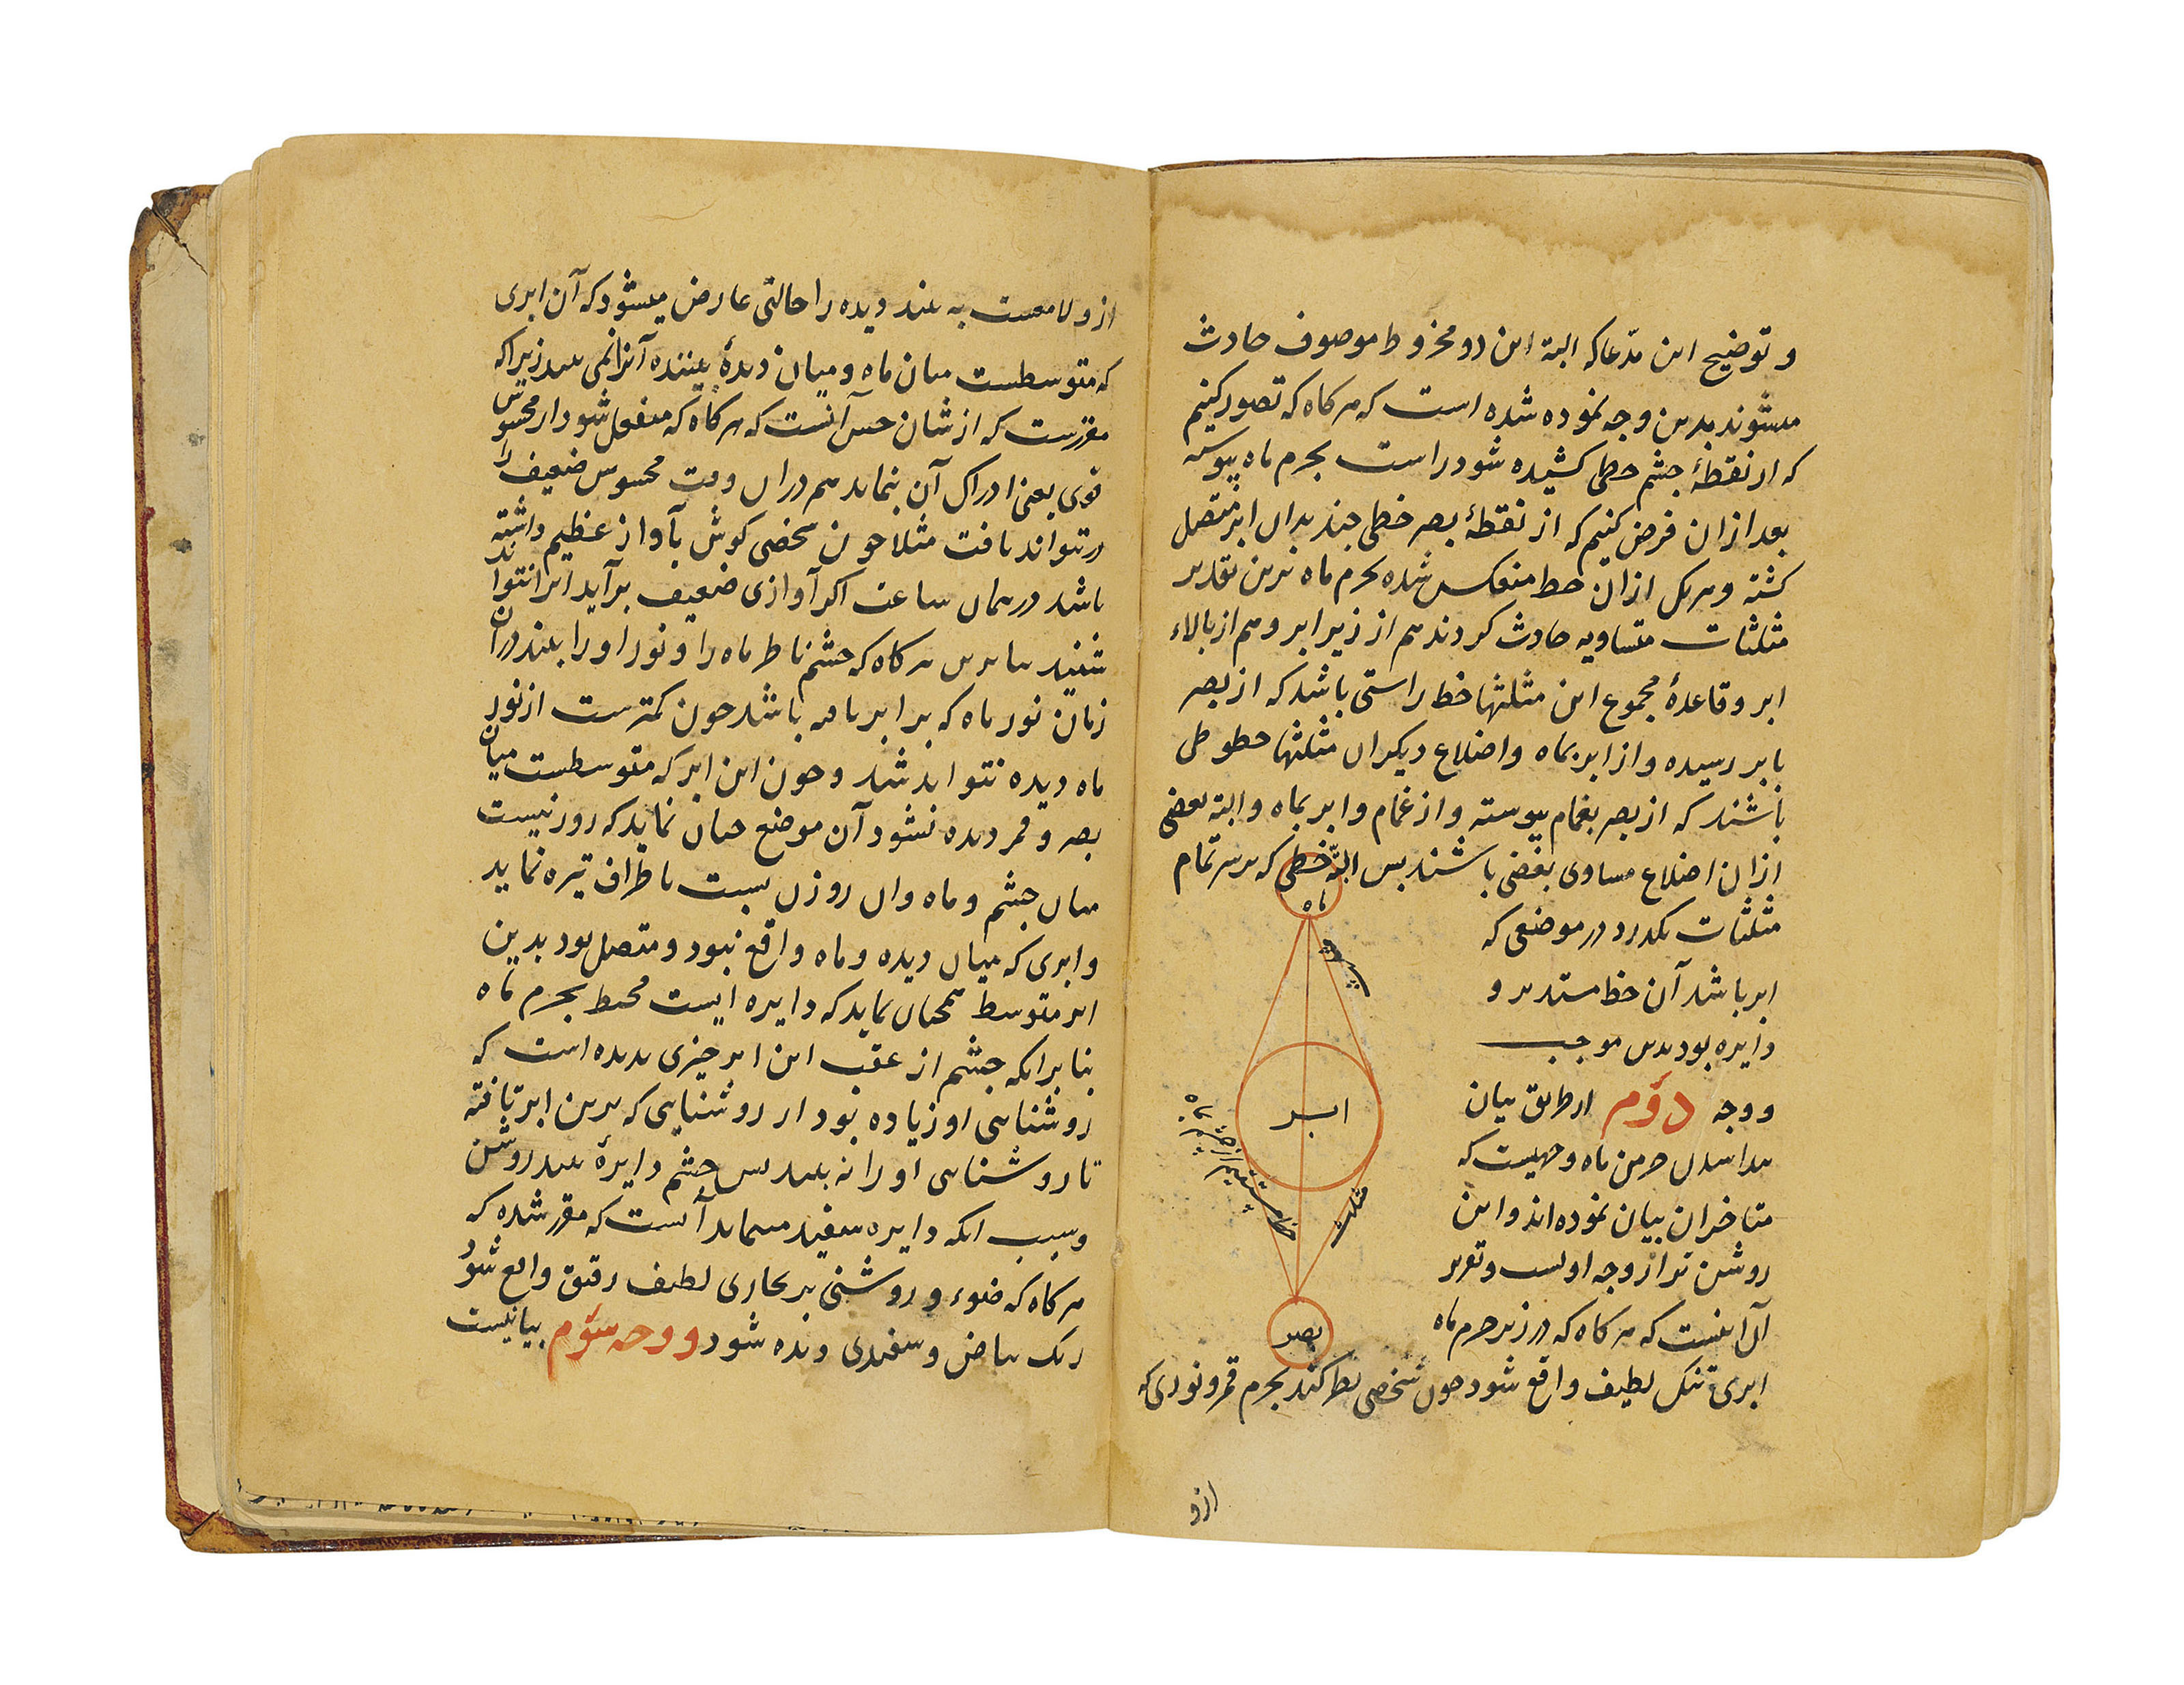 و توضیح این مدّعا که البته این دو مخروط موصوف حادث
میشوند بدین وجه نموده شده است که هر کاه که تصور کنیم
که از نقطهٔ چشم خطی کشیده شود راست بجرم ماه پیوسته
بعد ازان فرض کنیم که از نقطهٔ بصر خطی چند بدان ابر متصل
کشته و هر یکی ازان خط منعکس شده بجرم ماه برین تقدیر
مثلثات متساویه حادث کردند هم از زیر ابر و هم از بالاء
ابر و قاعدهٔ مجموع این مثلثها خط راستی باشد که از بصر
بابر رسیده و از ابر بماه و اضلاع دیکر ان مثلثها خطوطی
باشند که از بصر بغمام پیوسته و از غمام و ابر بماه و البته بعضی
ازان اضلاع مساوی بعضی باشند پس البته خطی که بر سر تمام
مثلثات بکذرد در موضعی که
ابر باشد آن خط مستدیر و
دایره بود بدین موجب
و وجه دوّم از طریق بیان
خرمن ماه وجهیست که
متاخران بیان نموده اند و این
روشن تر از وجه اولست و تقریر
آن آنست که هر کاه که در زیر جرم ماه
ابری تنک لطیف واقع شود چون شخصی نظر کند بجرم قمر و نوری که
ماه
ابر
مثلث
بصر
ازو
ازو به بیند دیده را حالتی عارض میشود که آن ابری
که متوسطست میان ماه و میان دیدهٔ بیننده آنرا نمی بیند زیرا که
مقررست که از شان حس آنست که هر کاه که منفعل شود از محسوس
قوی یعنی ادراک آن بنماید هم در ان وقت محسوس ضعیف را
در نتواند یافت مثلا چون شخصی کوش بآواز عظیم داشته
باشد در همان ساعت اکر آوازی ضعیف برآید انرا نتواند
شنید بنابرین هر کاه که چشم ناظر ماه را و نور او را بیند دران
زمان نور ماه که بر ابر تافته باشد چون کمترست از نور
ماه دیده نتواند شد و چون این ابر که متوسطست میان
بصر و قمر دیده نشود آن موضع چنان نماید که روزنیست
میان چشم و ماه وان روزن نسبت باطراف تیره نماید
و ابری که میان دیده و ماه واقع نبود و متصل بود بدین
ابر متوسط همچنان نماید که دایره ایست محیط بجرم ماه
بنابر انکه چشم از عقب این ابر چیزی ندیده است که
روشنایی او زیاده بود از روشنایی که برین ابر تافته
تا روشنایی او را نه بیند پس چشم دایرهٔ بیند روشن
و سبب انکه دایره سفید مینماید آنست که مقرر شده که
هر کاه که ضوء و روشنی بر بخاری لطیف رقیق واقع شود
رنک بیاض و سفیدی دیده شود و وجه سوّم بیانیست